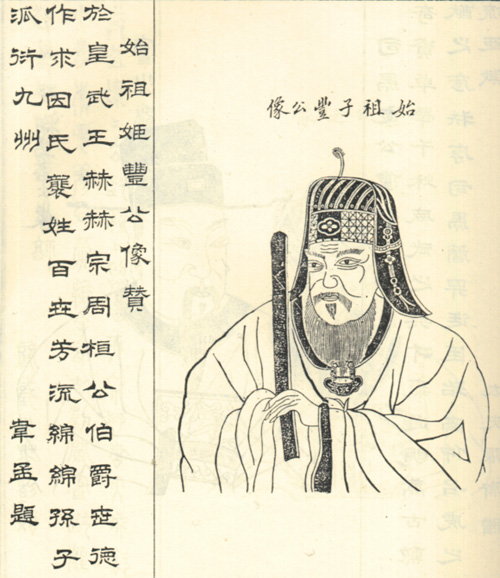 始祖子豐公像
始祖姬豐公像贊
於皇武王赫赫宗周桓公伯爵世德
作求因氏襄姓百世芳流綿綿孫子
派衍九州 韋孟題